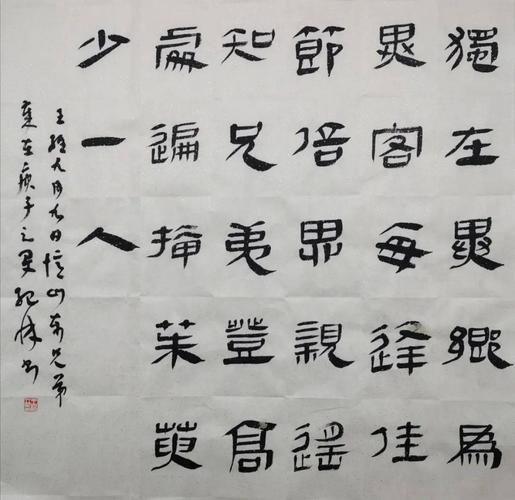 獨在異鄉為
異客每逢佳
節倍思親遙
知兄弟登高
處遍插茱萸
少一人
王維九月九日憶山東兄弟
在庚子之夏書